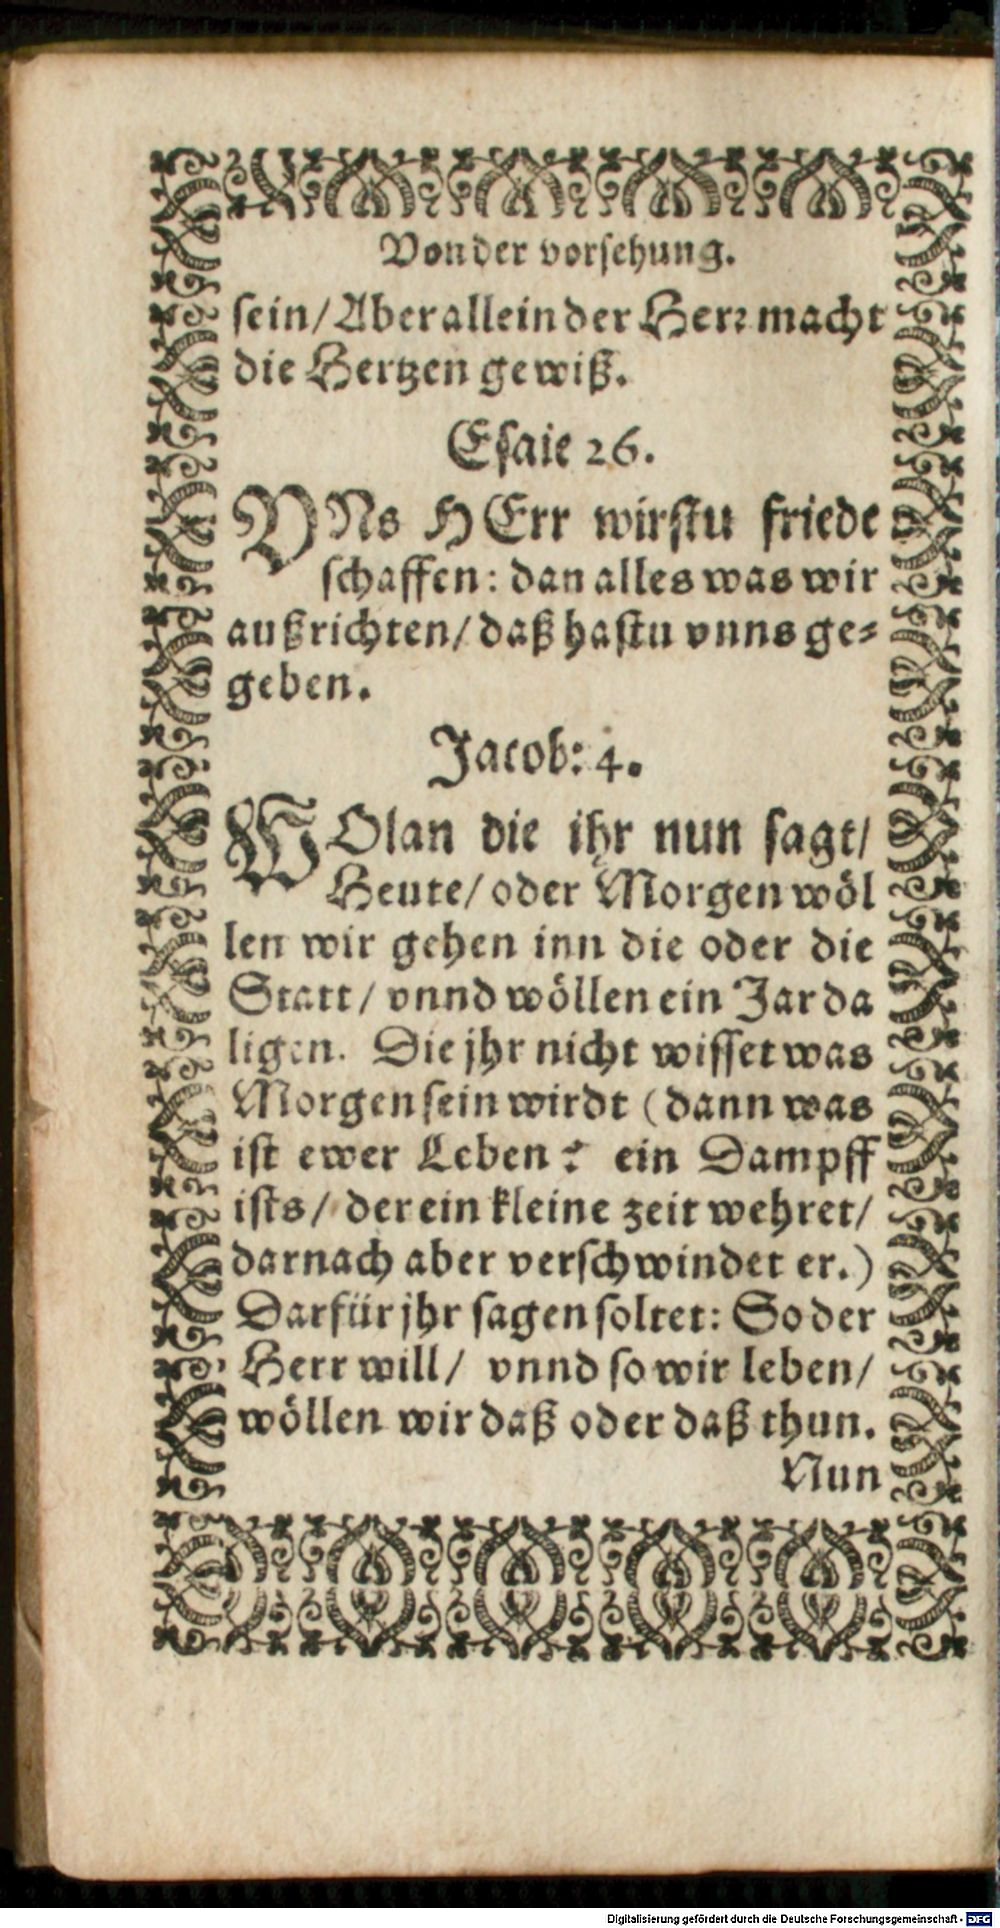 Von der vorsehung.
sein/ Aber allein der Herr macht
die Hertzen gewiß.
Esaie 26.
VNs HErr wirstu friede
schaffen: dan alles was wir
außrichten/ daß hastu vnns ge⸗
geben.
Jacob: 4.
WOlan die ihr nun sagt/
Heute/ oder Morgen wöl
len wir gehen inn die oder die
Statt/ vnnd wöllen ein Jar da
ligen. Die jhr nicht wisset was
Morgen sein wirdt (dann was
ist ewer Leben? ein Dampff
ists/ der ein kleine zeit wehret/
darnach aber verschwindet er.)
Darfür jhr sagen soltet: So der
Herr will/ vnnd so wir leben/
wöllen wir daß oder daß thun.
Nun
Digitalisierung gefördert durch die Deutsche Forschungsgemeinschaft - DFG